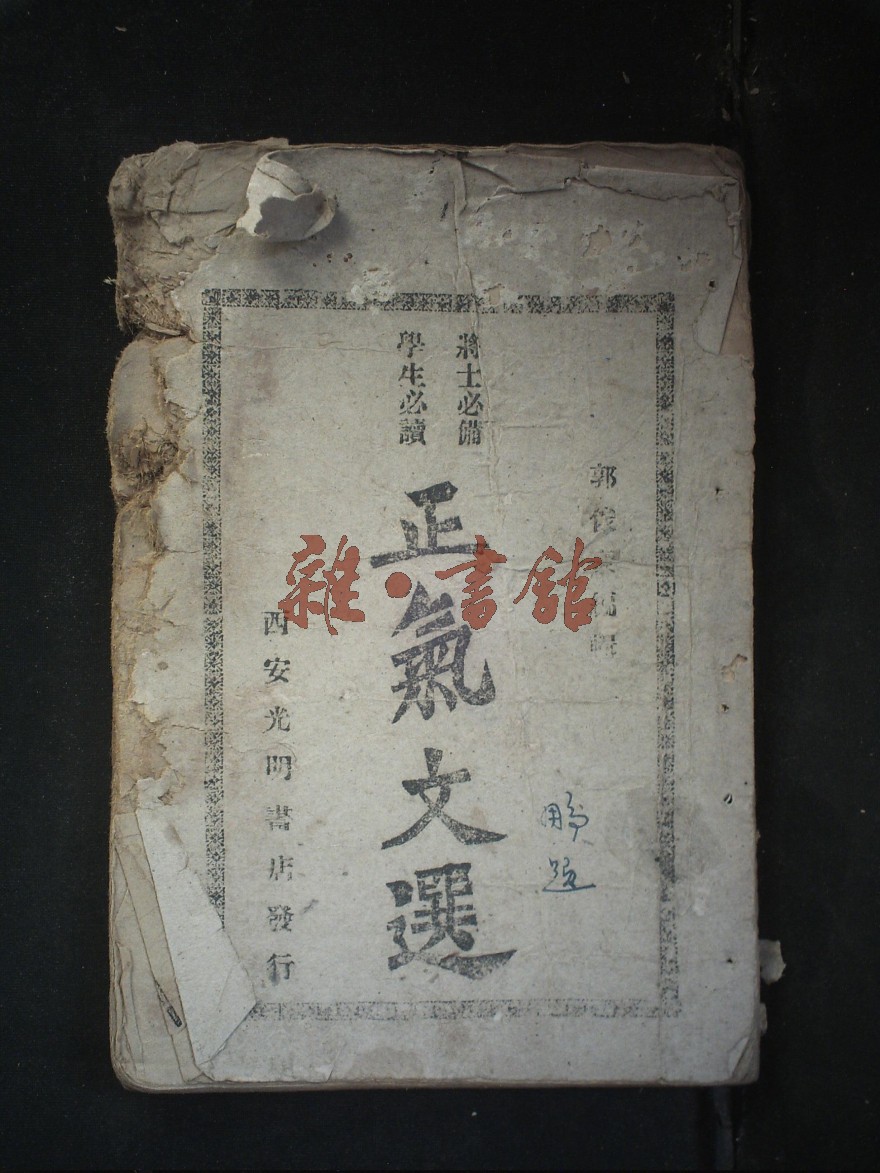 郭
將士必備
學生必讀
正氣文選
西安光明書店發行
雜·書館